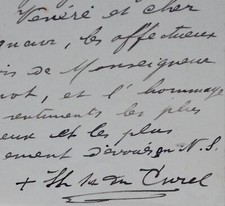 Vénéré et cher
gneur, les affectueux
is de Monseigneur
ot, et l'hommage
sentiments les plus
eux et les plus
ement dévoués en N. S.
+ du Curel